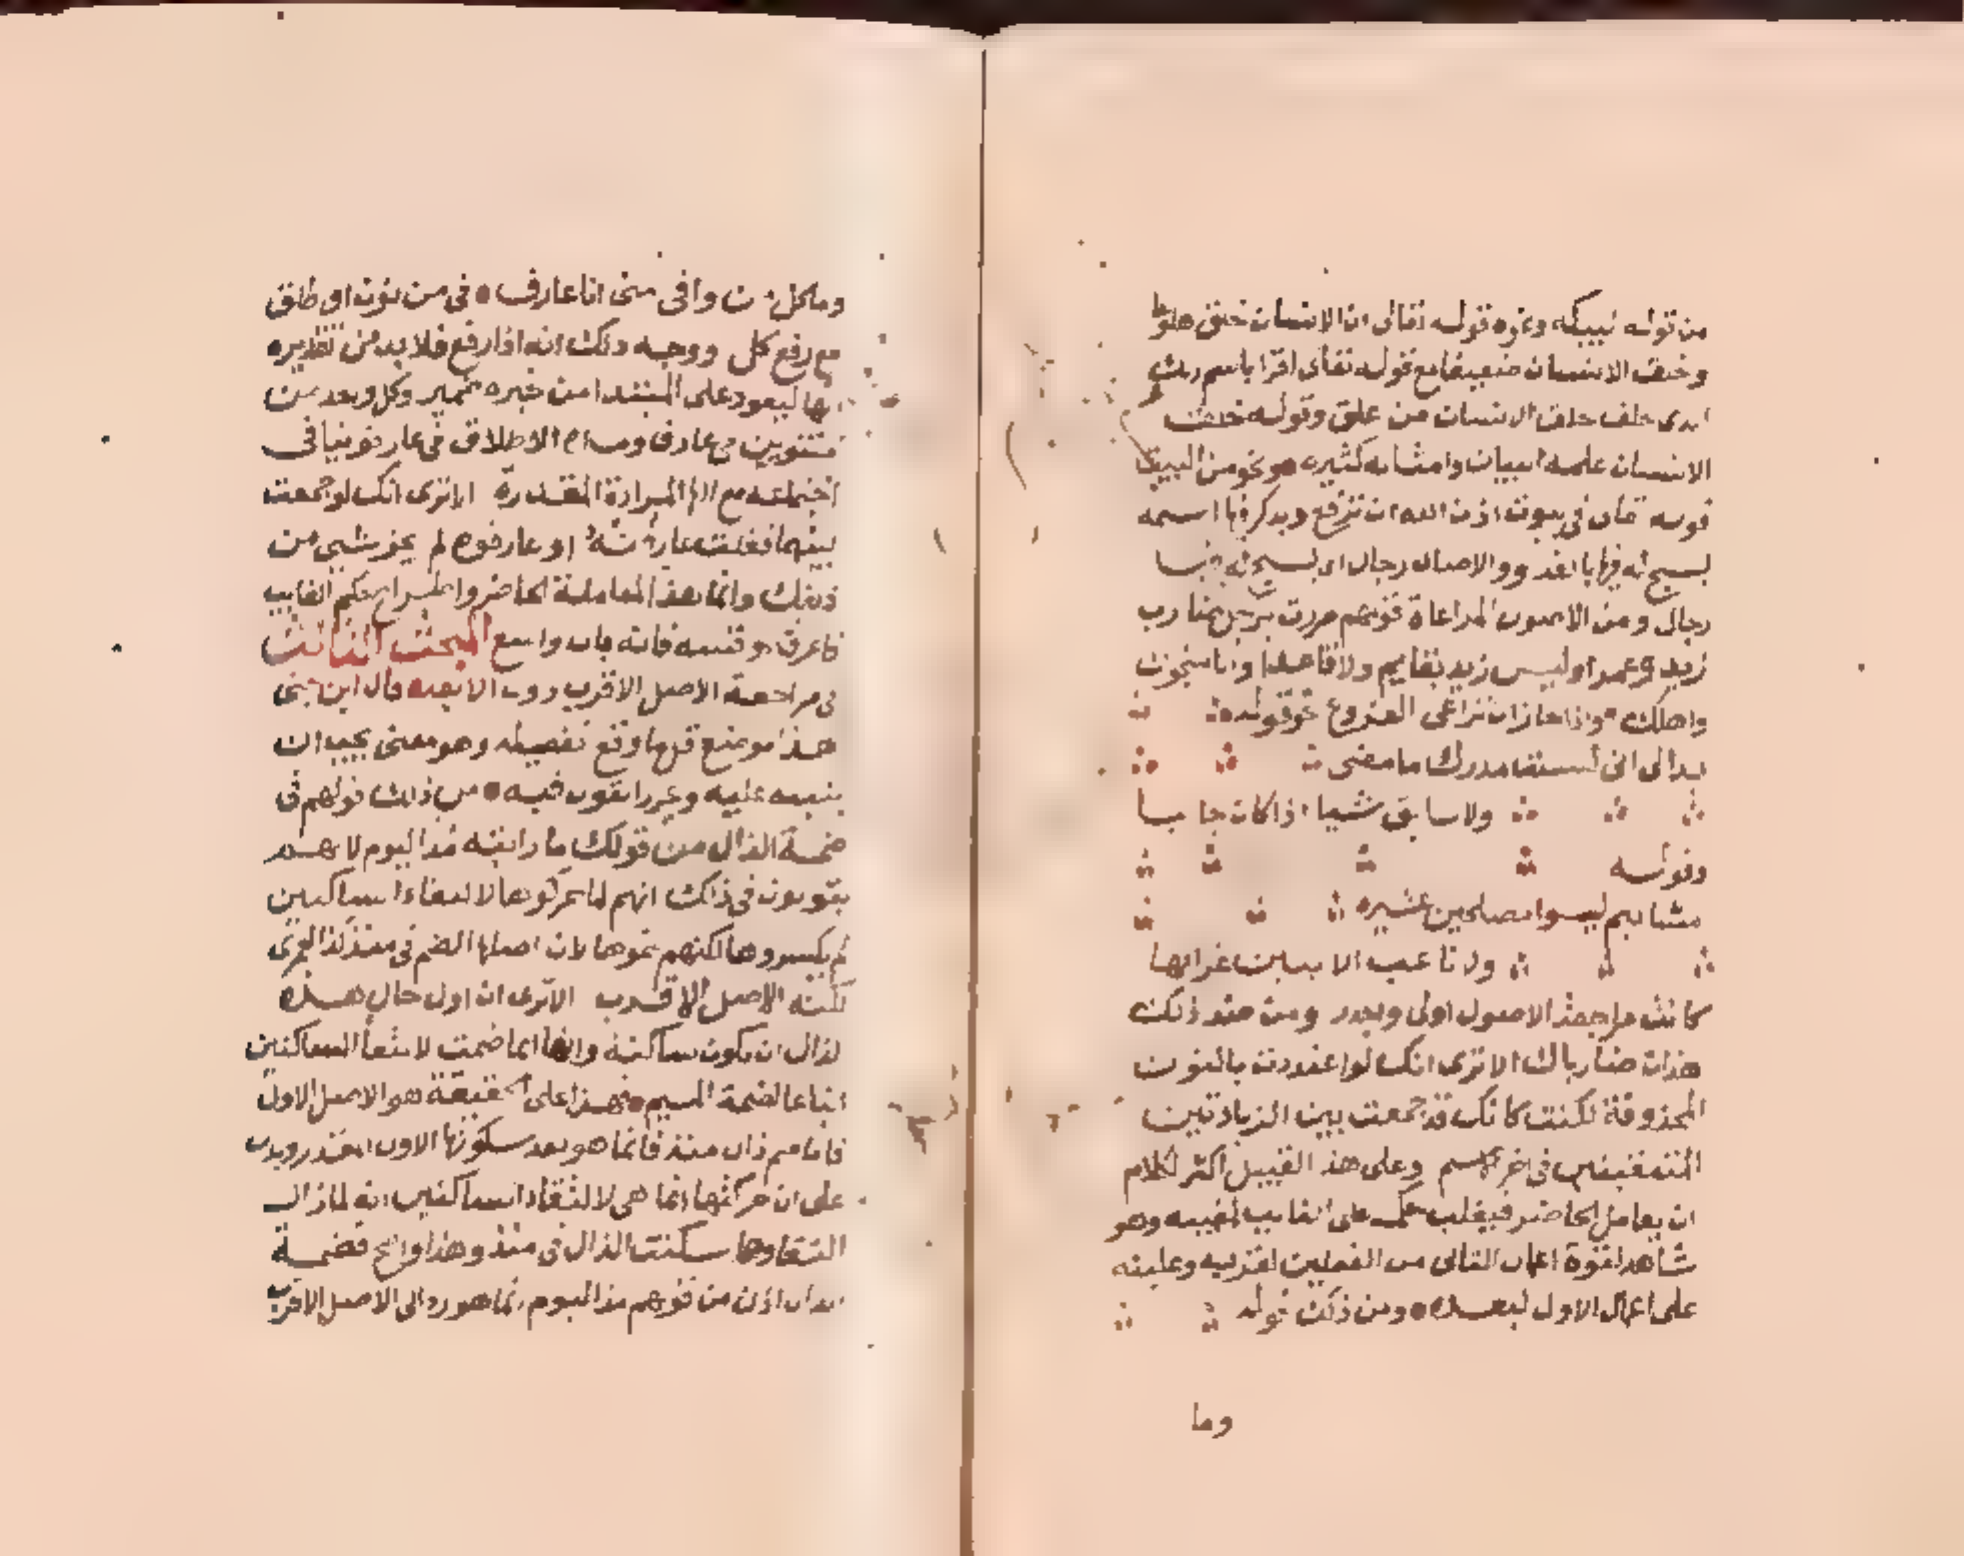 من قوله نبيكه وغيره قوله تعالى ان الانسان خلق هلوعا
وخلق الانسان ضعيفا مع قوله تعالى اقرا باسم ربك
الذى خلق خلق الانسان من علق وقوله خلق
الانسان علمه البيان وامثاله كثيره ونحو من البيت
قوله تعالى فى بيوت اذن الله ان ترفع ويذكر فيها اسمه
يسبح له فيها بالغدو والاصال رجال اى يسبح له فيها
رجال ومن الاصول المراعاة قولهم مررت برجل ضارب
زيد وعمرا وليس زيد بقايم ولا قاعدا وانا منجوك
واهلك واذا جاز ان تراعى الفروع نحو قوله
بدالى انى لست مدرك ما مضى
ولا سابق شيا اذا كان جابيا
وقوله
مشائيم ليسوا مصلحين عشيره
ولا ناعب الا ببين غرابها
كانت مراجعة الاصول اولى واجدر ومن ضد ذلك
هذان ضارباك الا ترى انك لو اعتددت بالنون
المحذوفة لكنت كانك قد جمعت بين الزيادتين
المتعقبتين فى اخر الاسم وعلى هذا القبيل اكثر الكلام
ان يعامل الحاضر فيغلب حكمه على الغايب لغيبه وهو
شاهد لقوة اعمال الثانى من الفعلين لقربه وغلبته
على اعمال الاول لبعده ومن ذلك قوله
وما
وما كل من وافى منى انا عارف فى من نون او طلق
مع رفع كل ووجه ذلك انه اذا رفع فلا بد من تقديره
ها ليعود على المبتدا من خبره ضمير وكل واحد من
التنوين فى عارف ومد الاطلاق فى عارفو ينافى
اجتماعه مع الها المرادة المقدرة الا ترى انك لو جمعت
بينهما فقلت عارفنه او عارفوه لم يجز شى من
ذلك وانما هذا المعاملة الحاضر واطراح حكم الغايب
فاعرفه وقسه فانه باب واسع المبحث الثالث
فى مراجعة الاصل الاقرب دون الابعد قال ابن جنى
هذا موضع قلما وقع تفصيله وهو معنى يجب ان
ينبه عليه ويحرر القول فيه من ذلك قولهم فى
ضمة الذال من قولك ما رايته مذ اليوم لانهم
يقولون فى ذلك انهم لما حركوها لالتقاء الساكنين
لم يكسروها لكنهم ضموها لان اصلها الضم فى منذ كذا لعمرى
لكنه الاصل الاقرب الا ترى ان اول حال هذه
الذال ان تكون ساكنة وانها انما ضمت لالتقاء الساكنين
اتباعا لضمة الميم فهذا على الحقيقة هو الاصل الاول
فاما ضم ذال منذ فانما هو بعد سكونها الاول المقدر ويدلك
على ان حركتها انما هى لالتقاء الساكنين انه لما زال
التقاوها سكنت الذال فى مذ وهذا واضح فضمة
الذال اذن من قولهم مذ اليوم انما هو رد الى الاصل الاقرب